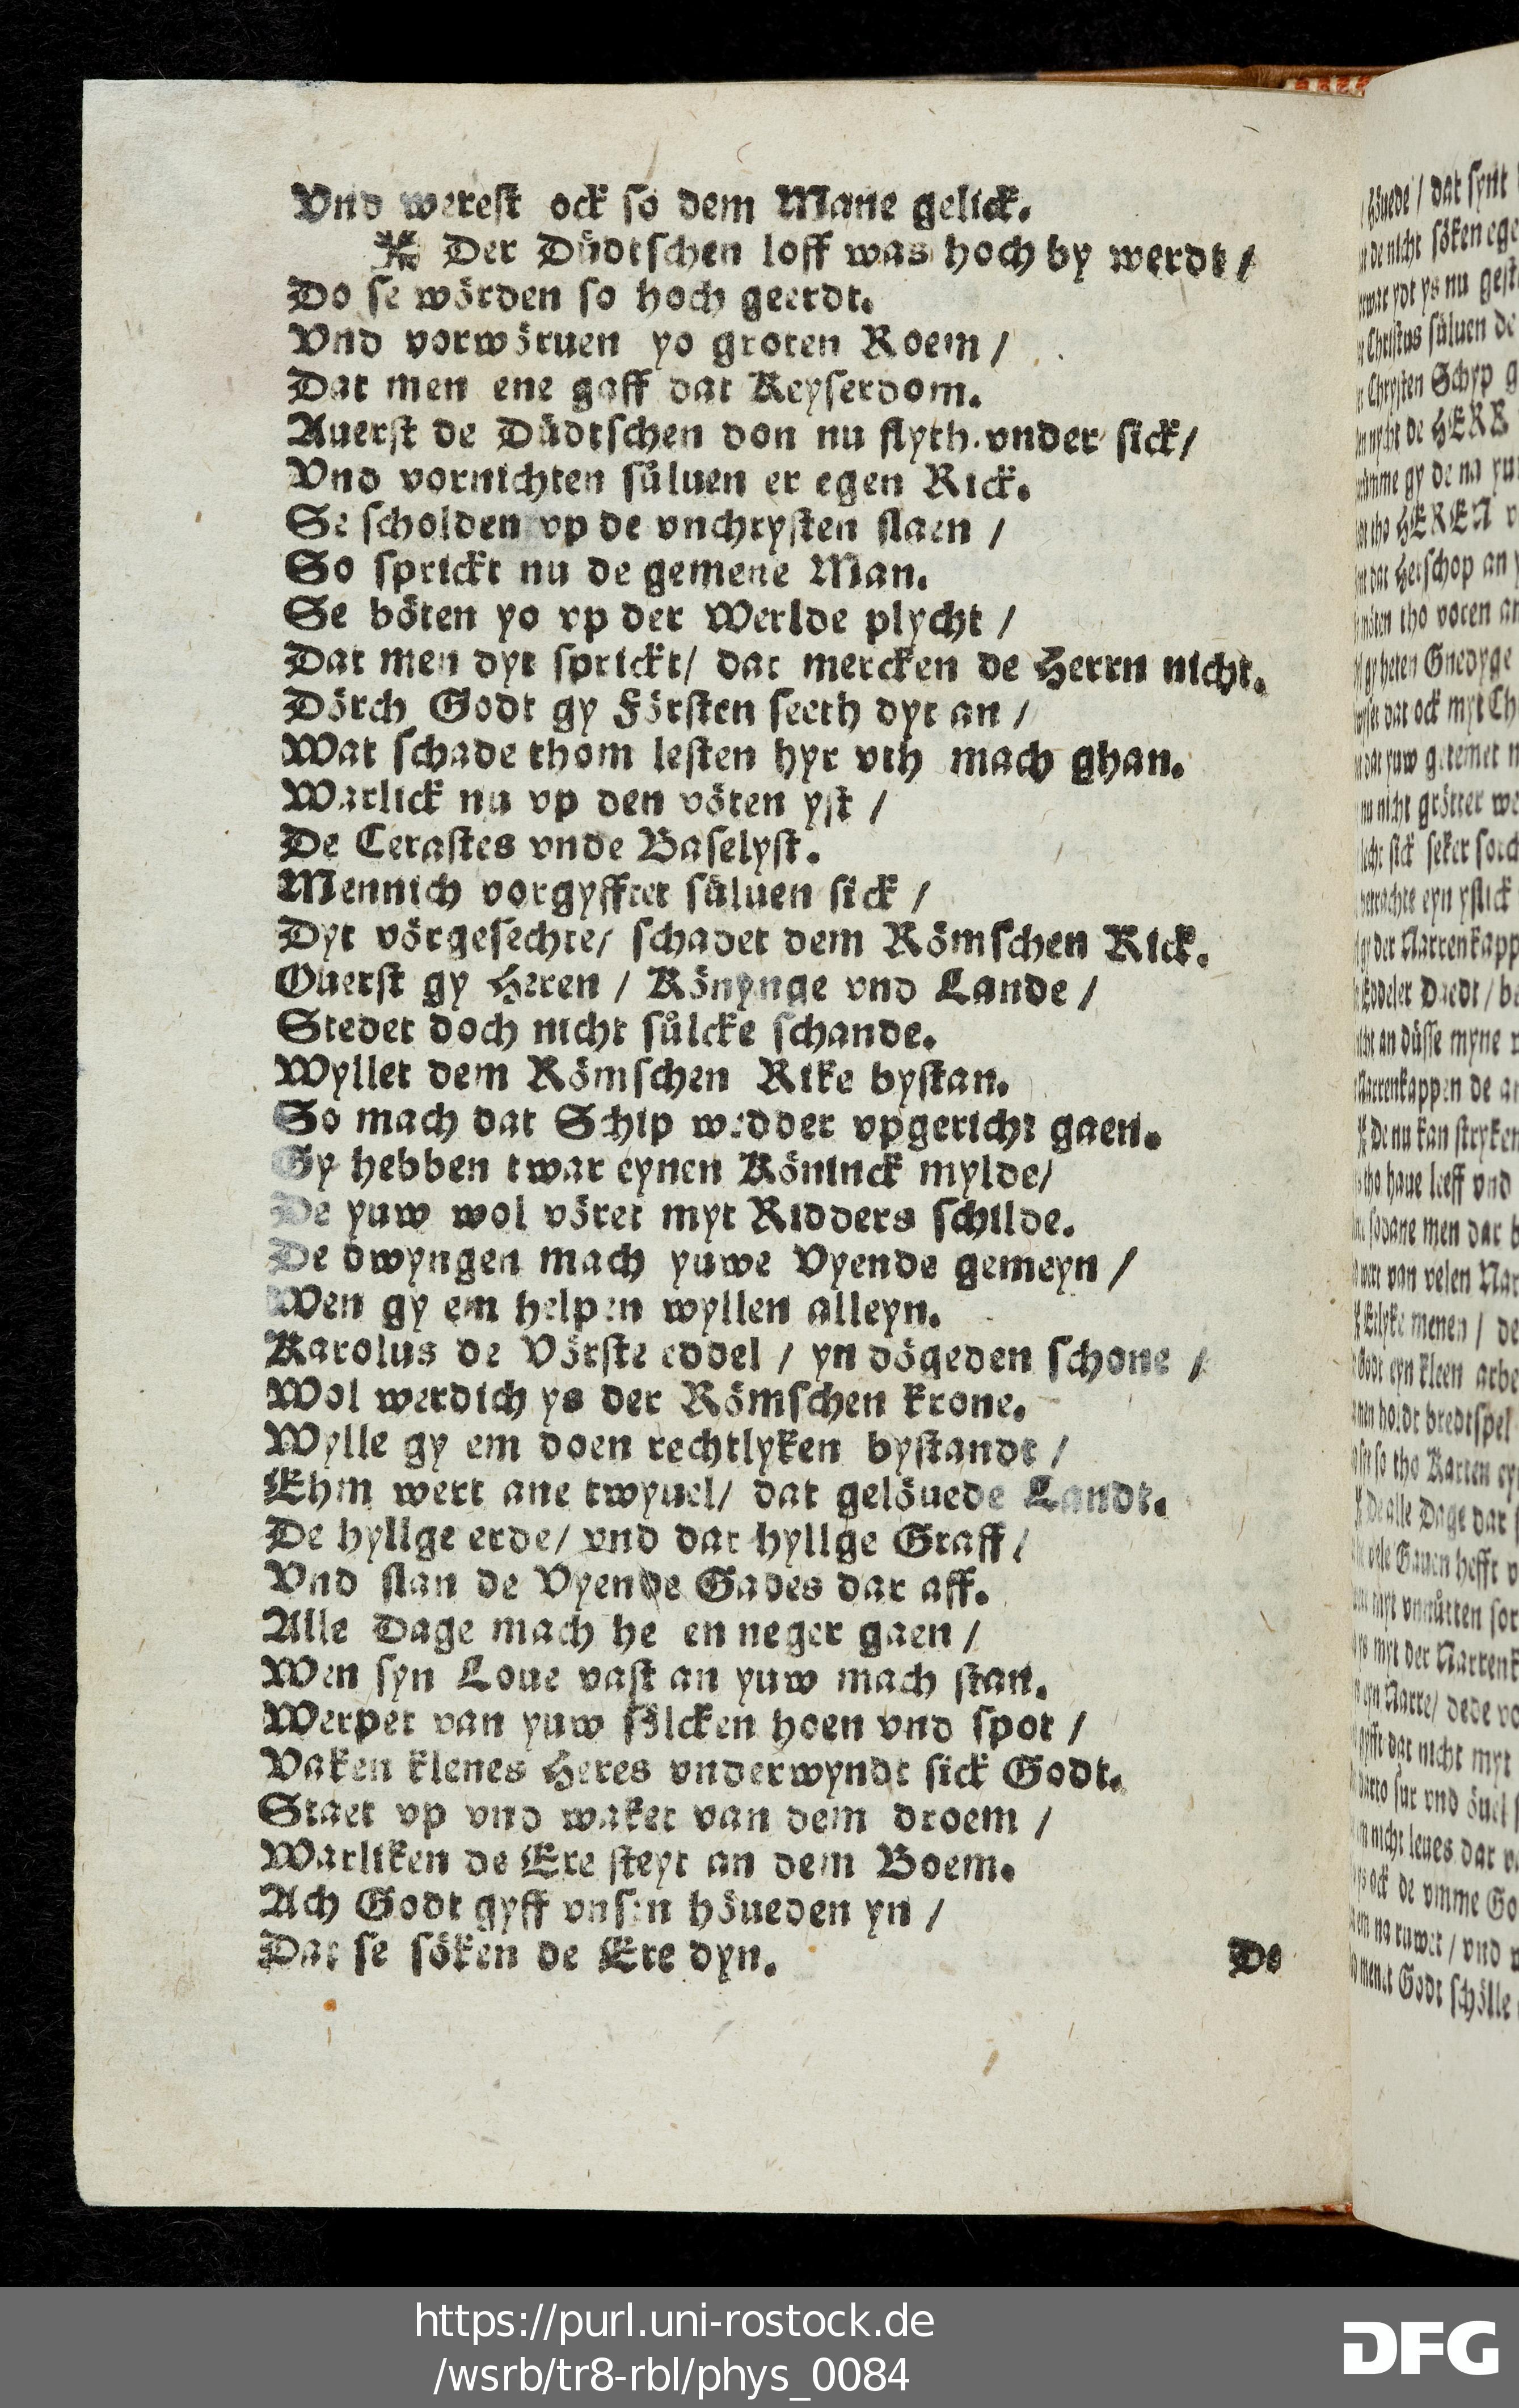 Vnd werest ock so dem Mane gelick.
Der Düdtschen loff was hoch by werdt /
Do se wörden so hoch geerdt.
Vnd vorwöruen yo groten Roem /
Dat men ene gaff dat Keyserdom.
Auerst de Düdtschen don nu flyth vnder sick /
Vnd vornichten sůluen er egen Rick.
Se scholden vp de vnchrysten slaen /
So sprickt nu de gemene Man.
Se böten yo vp der Werlde plycht /
Dat men dyt sprickt / dat mercken de Herrn nicht.
Dörch Godt gy Försten seeth dyt an /
Wat schade thom lesten hyr vth mach ghan.
Warlick nu vp den vöten yst /
De Cerastes vnde Baselyst.
Mennich vorgyfftet sůluen sick /
Dyt vörgesechte / schadet dem Römschen Rick.
Ouerst gy Heren / Könynge vnd Lande /
Stedet doch nicht sůlcke schande.
Wyllet dem Römschen Rike bystan.
So mach dat Schip wedder vpgericht gaen.
Gy hebben twar eynen Köninck mylde /
De yuw wol vöret myt Ridders schilde.
De dwyngen mach yuwe Vyende gemeyn /
Wen gy em helpen wyllen alleyn.
Karolus de Vörste eddel / yn dögeden schone /
Wol werdich ys der Römschen krone.
Wylle gy em doen rechtlyken bystandt /
Ehm wert ane twyuel / dat gelöuede Landt.
De hyllge erde / vnd dat hyllge Graff /
Vnd slan de Vyende Gades dar aff.
Alle Dage mach he en neger gaen /
Wen syn Loue vast an yuw mach stan.
Werpet van yuw sölcken hoen vnd spot /
Vaken klenes Heres vnderwyndt sick Godt.
Staet vp vnd waket van dem droem /
Warliken de Exe steyt an dem Boem.
Ach Godt gyff vnsen höueden yn /
Dat se söken de Ere dyn.
De
https://purl.uni-rostock.de
/wsrb/tr8-rbl/phys_0084
DFG